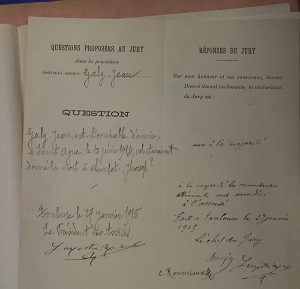 QUESTIONS PROPOSÉES AU JURY
dans la procédure
instruite contre Galz Jean
QUESTION
Galz, Jean, est-il coupable d'avoir,
le 10 juin 1914, volontairement
donné la mort à Joseph ?
Toulouse le 27 janvier 1915
Le Président des Assises
RÉPONSES DU JURY
Sur mon honneur et ma conscience, devant
Dieu et devant les hommes, la déclaration
du Jury est :
non à la majorité
à la majorité les circonstances
atténuantes
à l'accusé
Fait à Toulouse le 27 janvier
1915
Le chef du Jury